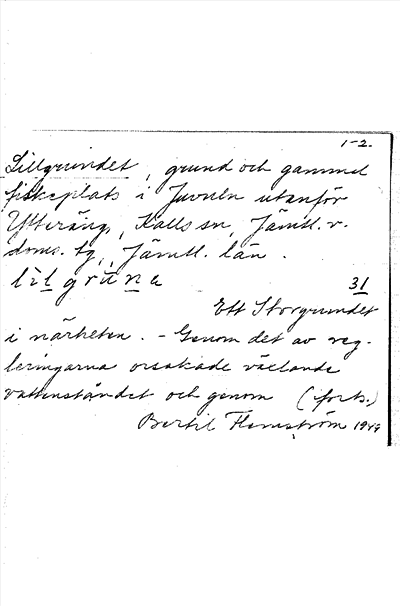 1-2.
Lillgrundet, grund och gammal
fiskeplats i Juveln utanför
Ytteräng, Kalls sn, Jämtl. v.
doms. tg, Jämtl. län.
lìlgruna 31
Ett Storgrundet
i närheten. - Genom det av reg-
leringarna orsakade växlande
vattenståndet och genom (forts.)
Bertil Flemström 1949